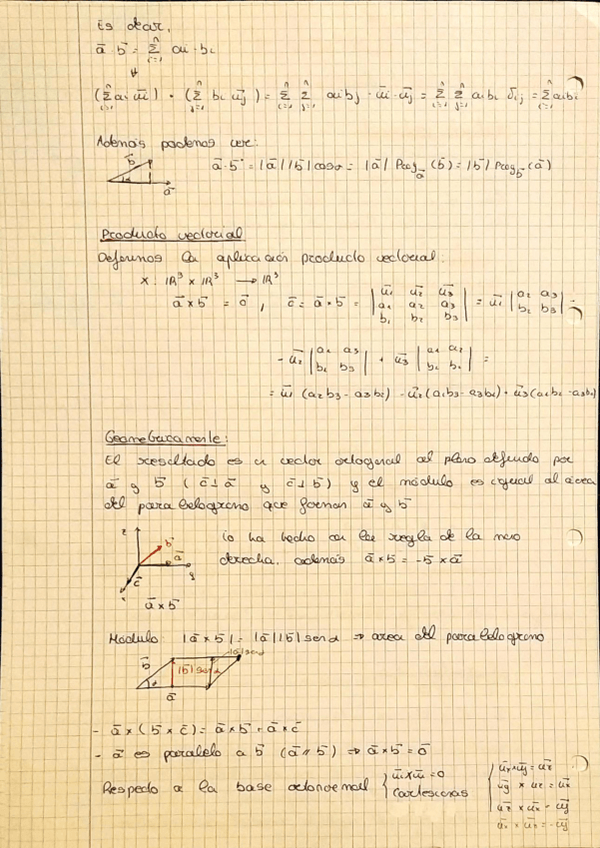 Es decir,
a⃗ · b⃗ = Σ_{i=1}^{n} ai · bi
⇓
(Σ_{i=1}^{n} ai u⃗i) · (Σ_{j=1}^{n} bj u⃗j) = Σ_{i=1}^{n} Σ_{j=1}^{n} ai bj · u⃗i · u⃗j = Σ_{i=1}^{n} Σ_{j=1}^{n} ai bi δij = Σ_{i=1}^{n} ai bi
Además podemos ver:
b⃗ α a⃗
a⃗ · b⃗ = |a⃗| |b⃗| cos α = |a⃗| Proy_a⃗ (b⃗) = |b⃗| Proy_b⃗ (a⃗)
Producto vectorial
Definimos la aplicación producto vectorial:
× : ℝ³ × ℝ³ → ℝ³
a⃗ × b⃗ = c⃗ , c⃗ = a⃗ × b⃗ = | u⃗1 u⃗2 u⃗3 | = u⃗1 | a2 a3 | -
| a1 a2 a3 | | b2 b3 |
| b1 b2 b3 |
- u⃗2 | a1 a3 | + u⃗3 | a1 a2 | =
| b1 b3 | | b1 b2 |
= u⃗1 (a2b3 - a3b2) - u⃗2 (a1b3 - a3b1) + u⃗3 (a1b2 - a2b1)
Geométricamente:
El resultado es un vector ortogonal al plano definido por
a⃗ y b⃗ (c⃗ ⊥ a⃗ y c⃗ ⊥ b⃗) y el módulo es igual al área
del paralelogramo que forman a⃗ y b⃗
z b⃗ a⃗ y c⃗ x
a⃗ × b⃗
lo ha hecho con la regla de la mano
derecha, además a⃗ × b⃗ = -b⃗ × a⃗
Módulo |a⃗ × b⃗| = |a⃗| |b⃗| sen α ⇒ area del paralelogramo
b⃗ α a⃗ |b⃗| sen α |b⃗| sen α
- a⃗ × (b⃗ × c⃗) = a⃗ × b⃗ + a⃗ × c⃗
- a⃗ es paralelo a b⃗ (a⃗ // b⃗) ⇒ a⃗ × b⃗ = 0⃗
Respecto a la base ortonormal { u⃗i × u⃗i = 0
cartesianas
{ u⃗x × u⃗y = u⃗z
u⃗y × u⃗z = u⃗x
u⃗z × u⃗x = u⃗y
u⃗x × u⃗z = -u⃗y